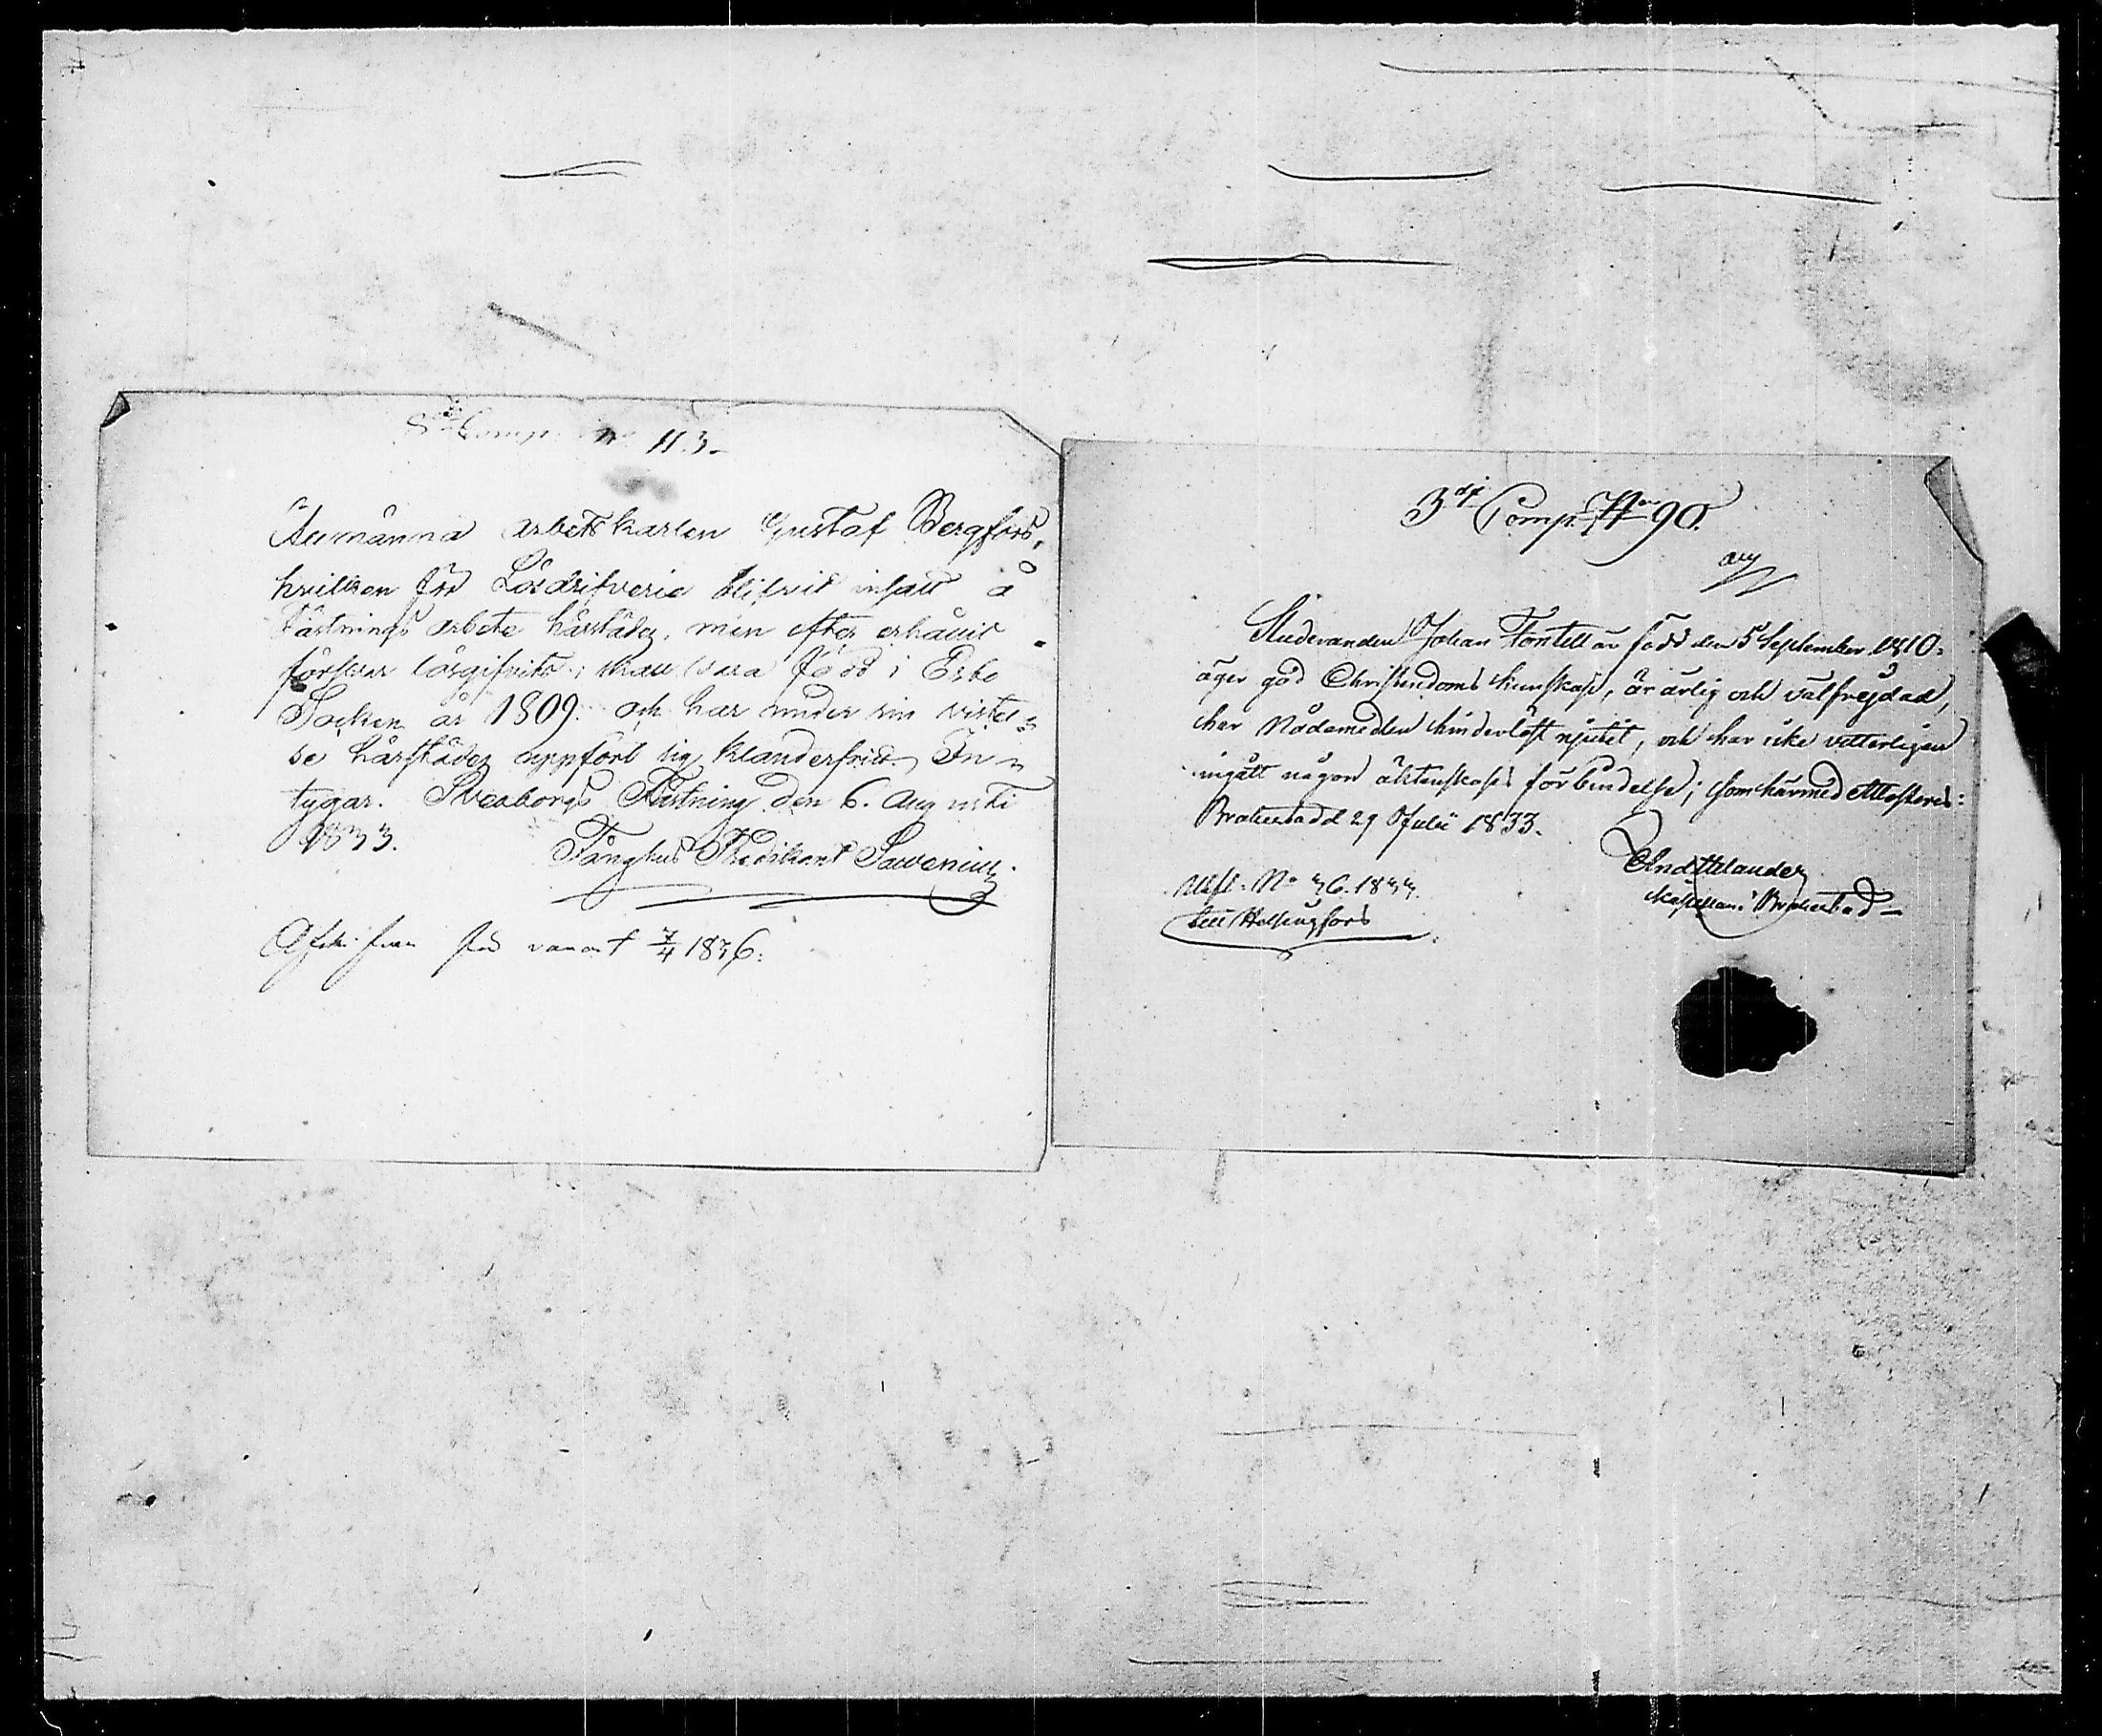 Comp. No 113.
Allmänna arbetskarlen Gustaf Bergfors,
hvilken för Lösdrifveri blifvit insatt å
Fästnings arbete härstädes, men efter erhållit
försvar lösgifvits; skall vara född i Esbo
Socken år 1809. och har under sin vistel=
se härstädes uppfört sig klanderfritt. In=
tygar. Sveaborgs Fästning den 6. Augusti
1833.
Fånghus Predikant Savenius.
för vanart 7/4 1836.
3dj Comp. No 90.
Studeranden Johan Fontell är född den 5 September 1810.
äger god Christendoms kunskap, är ärlig och välfrejdad,
har Nådemedlen hinderlöst njutit, och har icke vetterligen
ingått någon äktenskaps förbindelse; som härmed attesteras:
Brahestad d 29 Julii 1833.
And. Helander
Kapellan i Brahestad
Utfl. No 36. 1833.
till Helsingfors